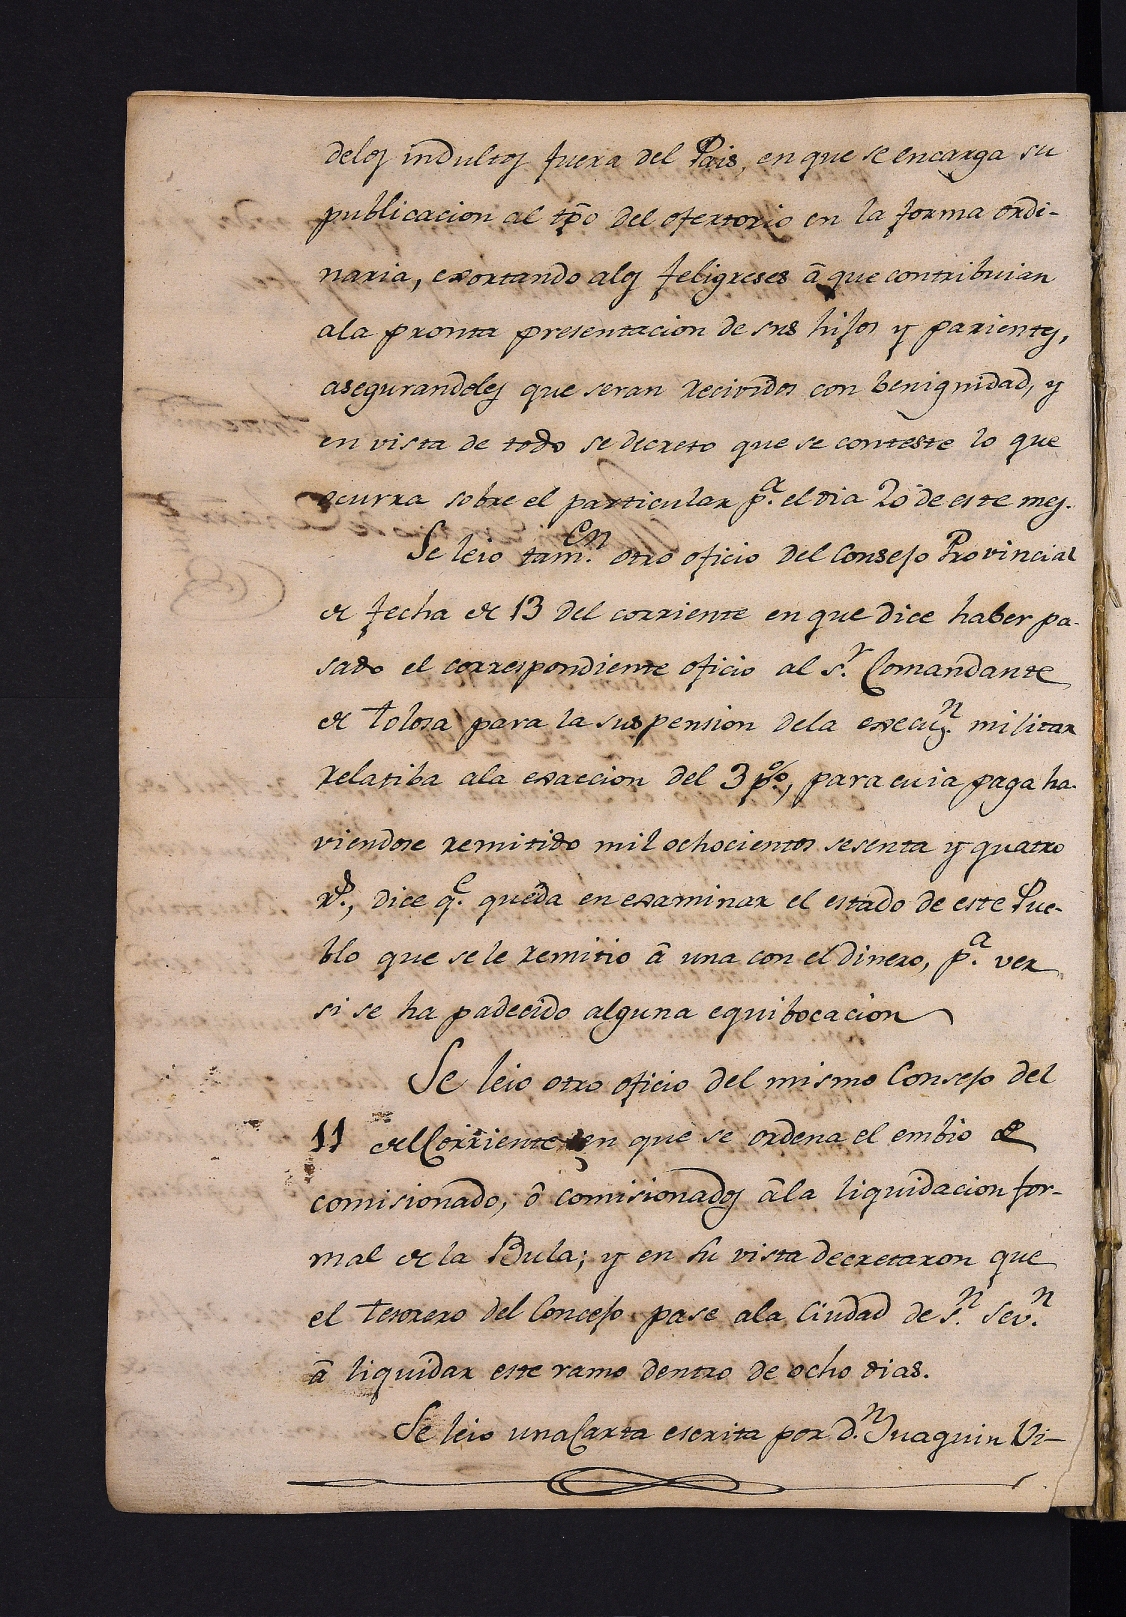 delos indultos fuera del Pais, en que se encarga su
publicacion al tp̄o del ofertorio en la forma ordi-
naria, exortando alos feligreses â que contribuian
ala pronta presentacion de sus hijos y parientes,
asegurandoles que seran recividos con benignidad, y
en vista de todo se decreto que se conteste lo que
ocurra sobre el particular p.ª el dia 20 de este mes.
Se leio tam.en otro oficio del Consejo Provincial
de fecha de 13 del corriente en que dice haber pa-
sado el correspondiente oficio al s.r Comandante
de Tolosa para la suspension dela execuz.n militar
relatiba ala exaccion del 3 p.%, para cuia paga ha-
viendose remitido mil ochocientos sesenta y quatro
r.s, dice q.e queda en examinar el estado de este Pue-
blo que se le remitio â una con el dinero, p.a ver
si se ha padecido alguna equibocacion
Se leio otro oficio del mismo Consejo del
11 del Corriente en que se ordena el embio de
comisionado, ô comisionados âla liquidacion for-
mal de la Bula; y en su vista decretaron que
el Tesorero del Concejo pase ala Ciudad de S.n Sev.n
â liquidar este ramo dentro de ocho dias.
Se leio una Carta escrita por d.n Juaquin Vi-